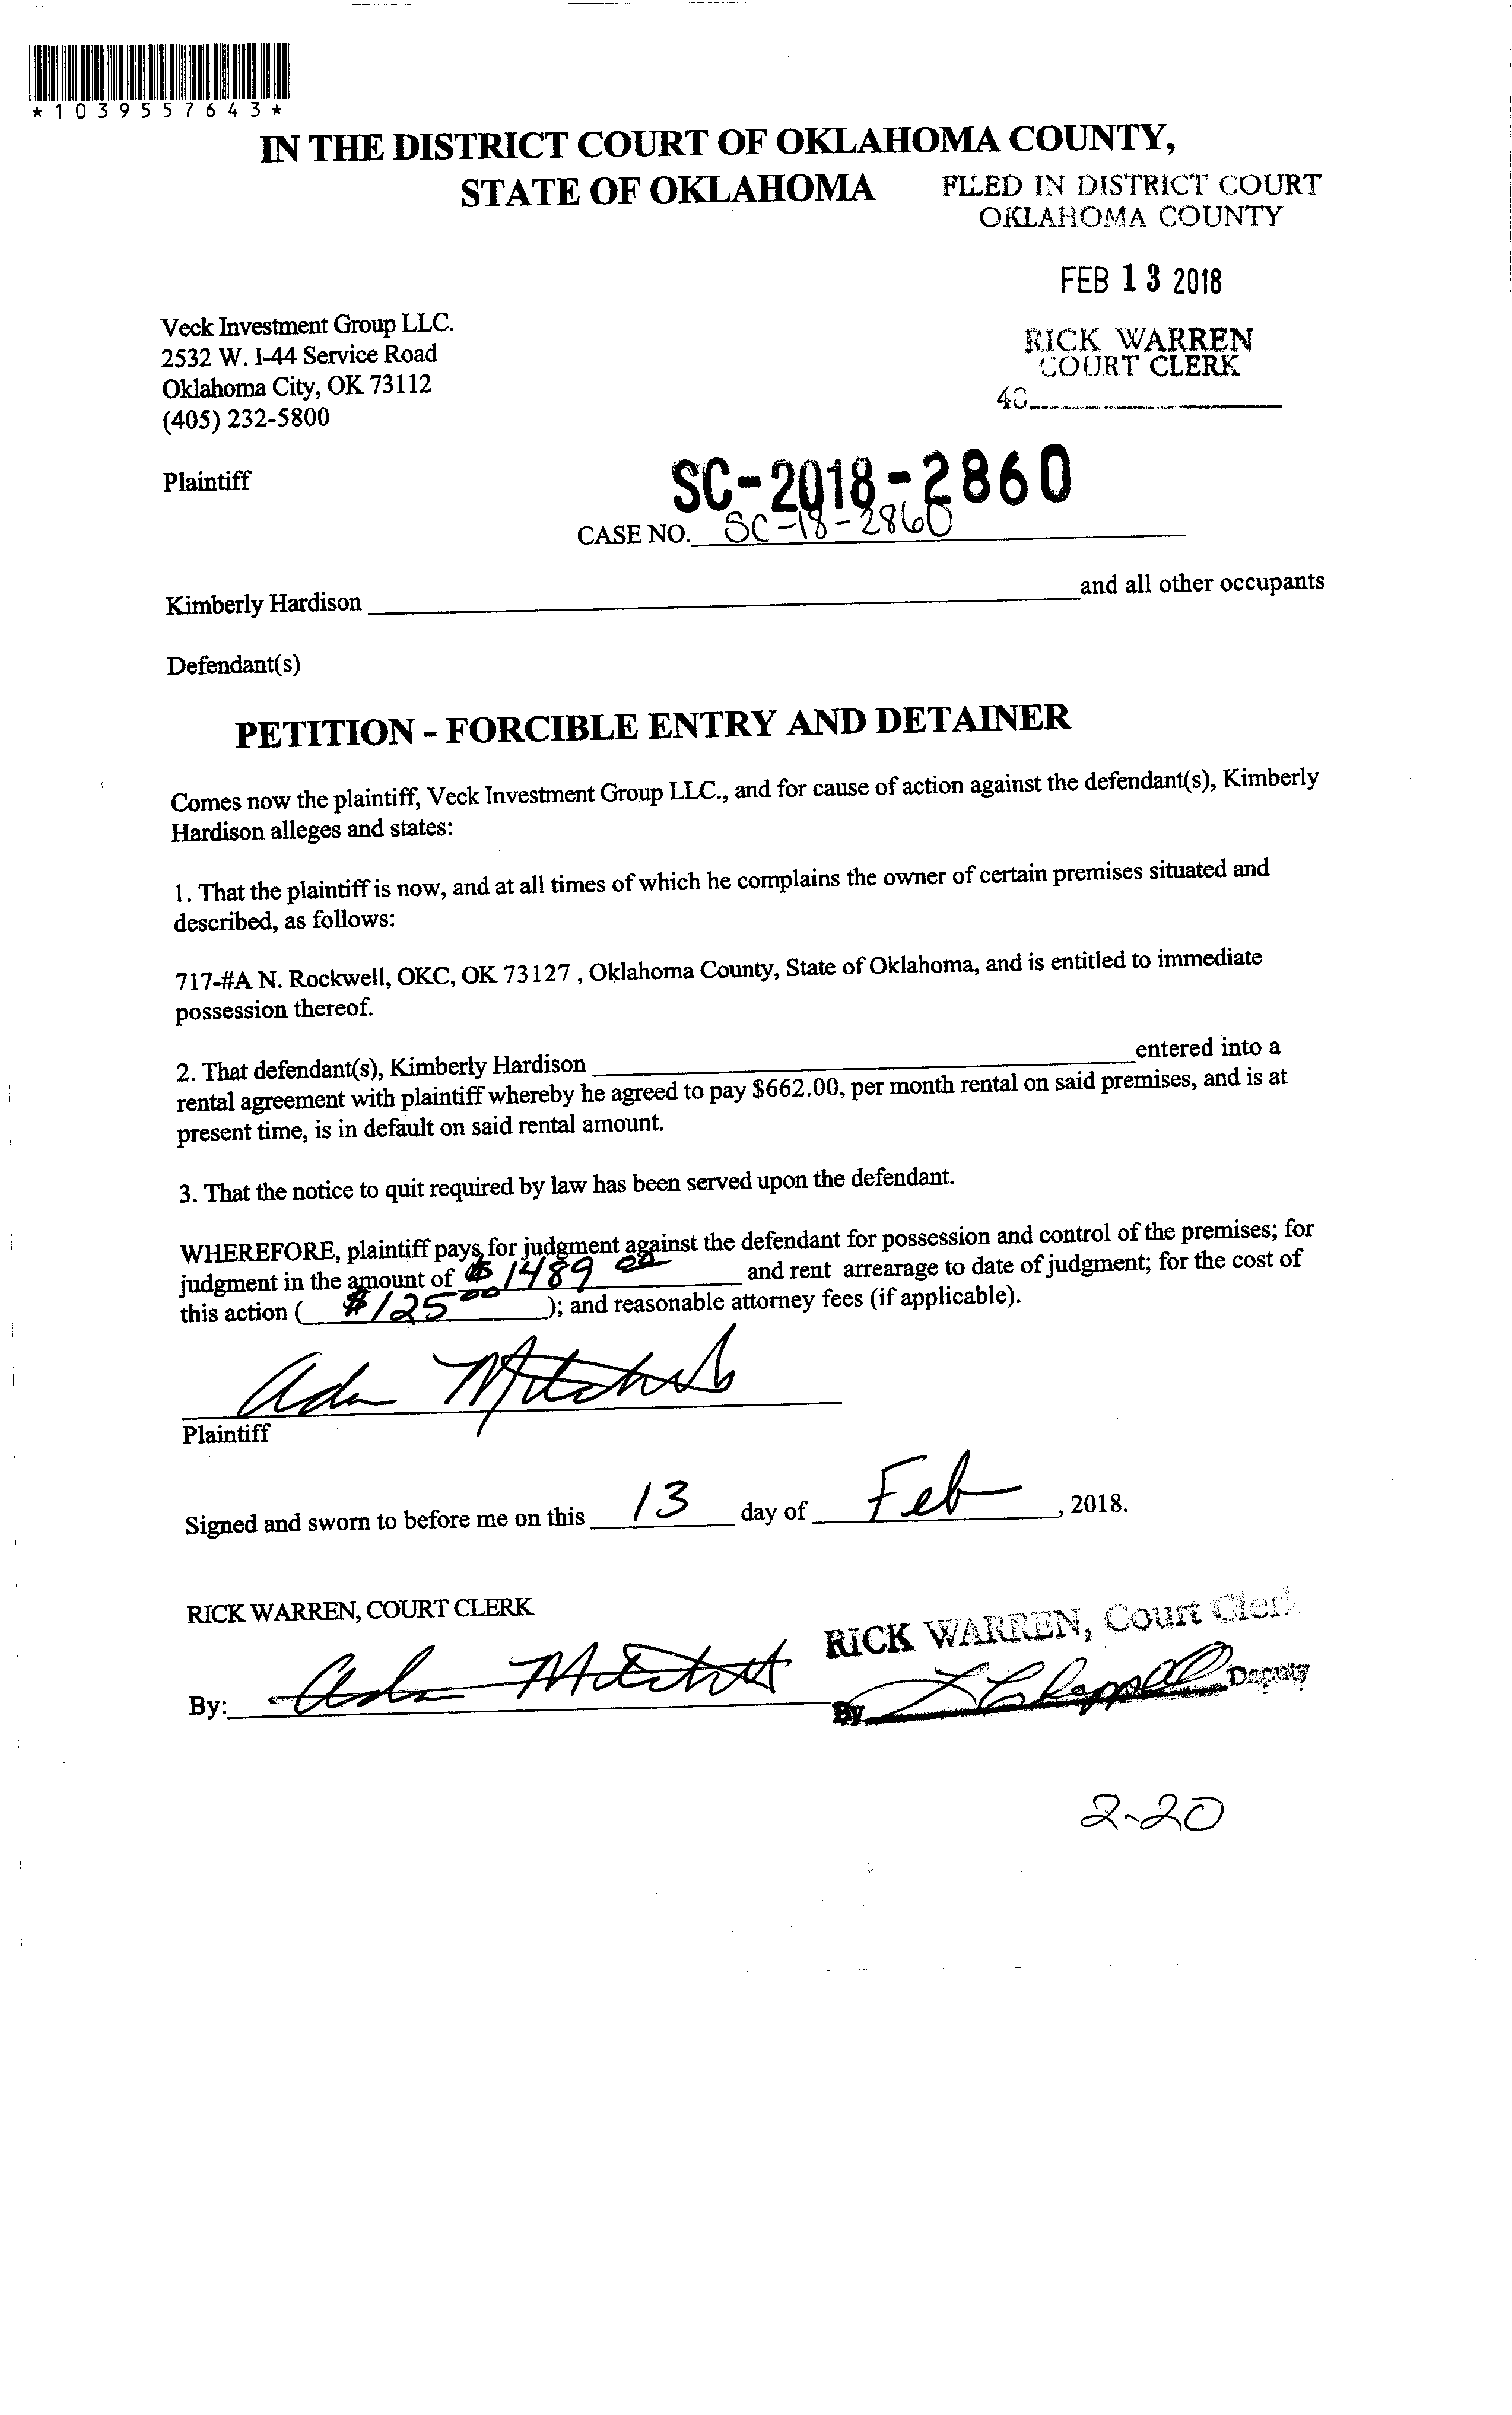 *1039557643*
IN THE DISTRICT COURT OF OKLAHOMA COUNTY,
STATE OF OKLAHOMA
FILED IN DISTRICT COURT
OKLAHOMA COUNTY
FEB 13 2018
RICK WARREN
COURT CLERK
Veck Investment Group LLC.
2532 W. I-44 Service Road
Oklahoma City, OK 73112
(405) 232-5800
Plaintiff
SC-2018-2860
CASE NO. SC-18-2860
Kimberly Hardison and all other occupants
Defendant(s)
PETITION - FORCIBLE ENTRY AND DETAINER
Comes now the plaintiff, Veck Investment Group LLC., and for cause of action against the defendant(s), Kimberly
Hardison alleges and states:
1. That the plaintiff is now, and at all times of which he complains the owner of certain premises situated and
described, as follows:
717-#A N. Rockwell, OKC, OK 73127 , Oklahoma County, State of Oklahoma, and is entitled to immediate
possession thereof.
2. That defendant(s), Kimberly Hardison entered into a
rental agreement with plaintiff whereby he agreed to pay $662.00, per month rental on said premises, and is at
present time, is in default on said rental amount.
3. That the notice to quit required by law has been served upon the defendant.
WHEREFORE, plaintiff pays for judgment against the defendant for possession and control of the premises; for
judgment in the amount of $1489 00 and rent arrearage to date of judgment; for the cost of
this action ( $125 00 ); and reasonable attorney fees (if applicable).
Plaintiff
Signed and sworn to before me on this 13 day of Feb , 2018.
RICK WARREN, COURT CLERK
RICK WARREN, Court Clerk
By:
By Deputy
2-20